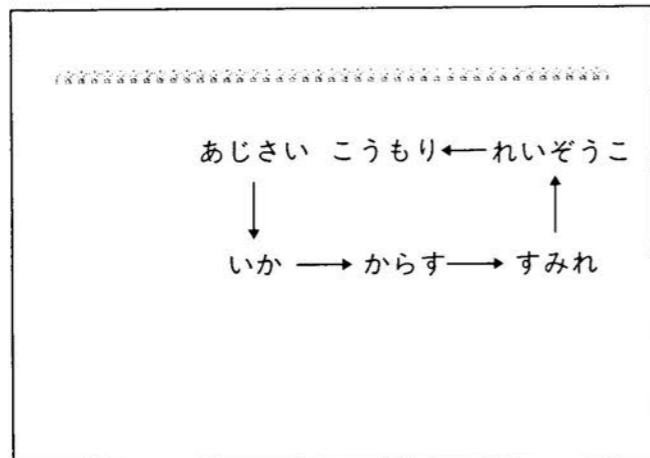 あじさい こうもり←れいぞうこ
いか→からす→すみれ